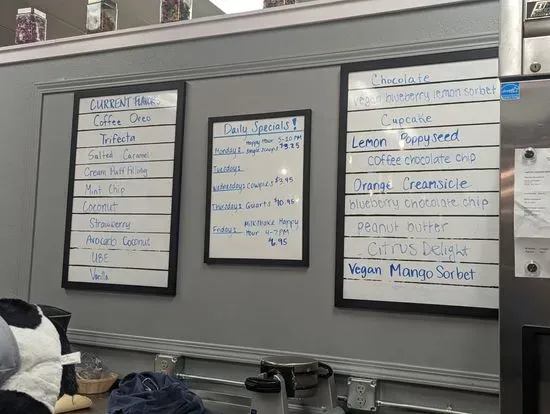 CURRENT FLAVORS
Coffee Oreo
Trifecta
Salted Caramel
Cream Puff Filling
Mint Chip
Coconut
Strawberry
Avocado Coconut
UBE
Vanilla
Daily Specials!
Mondays: Happy Hour 5-10 PM
Single scoops $3.25
Tuesdays:
Wednesdays: Cowpies $3.95
Thursdays: Quarts $10.95
Fridays: Milkshake Happy
Hour 4-7 PM
$6.95
Chocolate
Vegan blueberry lemon sorbet
Cupcake
Lemon Poppyseed
Coffee chocolate chip
Orange Creamsicle
blueberry chocolate chip
peanut butter
Citrus Delight
Vegan Mango Sorbet